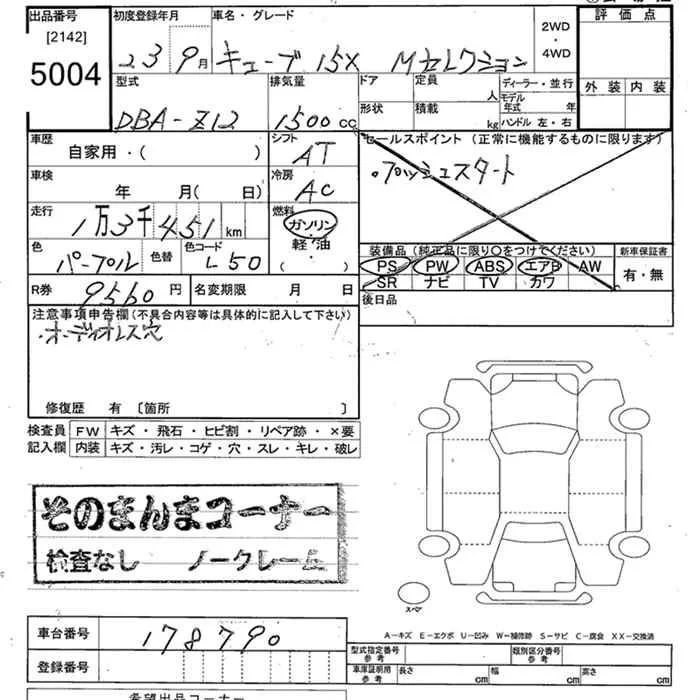 出品番号
[2142]
5004
初度登録年月
車名・グレード
23 9月 キューブ 15X Mセレクション
2WD
・
4WD
評価点
外装 内装
型式
排気量
ドア
定員
人
ディーラー・並行
モデル
年式 年
DBA-Z12
1500 CC
形状
積載
kg
ハンドル 左・右
車歴
自家用・( )
シフト
AT
セールスポイント (正常に機能するものに限ります)
プッシュスタート
車検
年 月( 日)
冷房
AC
走行
1万3千451 km
燃料
ガソリン
・
軽油
( ・ )
色
パープル
色替
色コード
L50
装備品 (純正品に限り○をつけてください)
新車保証書
PS PW ABS エアB AW
SR ナビ TV カワ
有・無
R券 9560 円
名変期限 月 日
後日品
注意事項申告欄(不具合内容等は具体的に記入して下さい)
・オーディオレス穴
修復歴 有 〔箇所 〕
検査員
記入欄
FW キズ・飛石・ヒビ割・リペア跡・×要
内装 キズ・汚レ・コゲ・穴・スレ・キレ・破レ
そのまんまコーナー
検査なし ノークレーム
スペア
A-キズ E-エクボ U-凹み W-補修跡 S-サビ C-腐食 XX-交換済
車台番号 178790
登録番号
型式指定番号
参考
類別区分番号
参考
車庫証明用
参考
長さ cm
幅 cm
高さ cm
希望出品コーナー